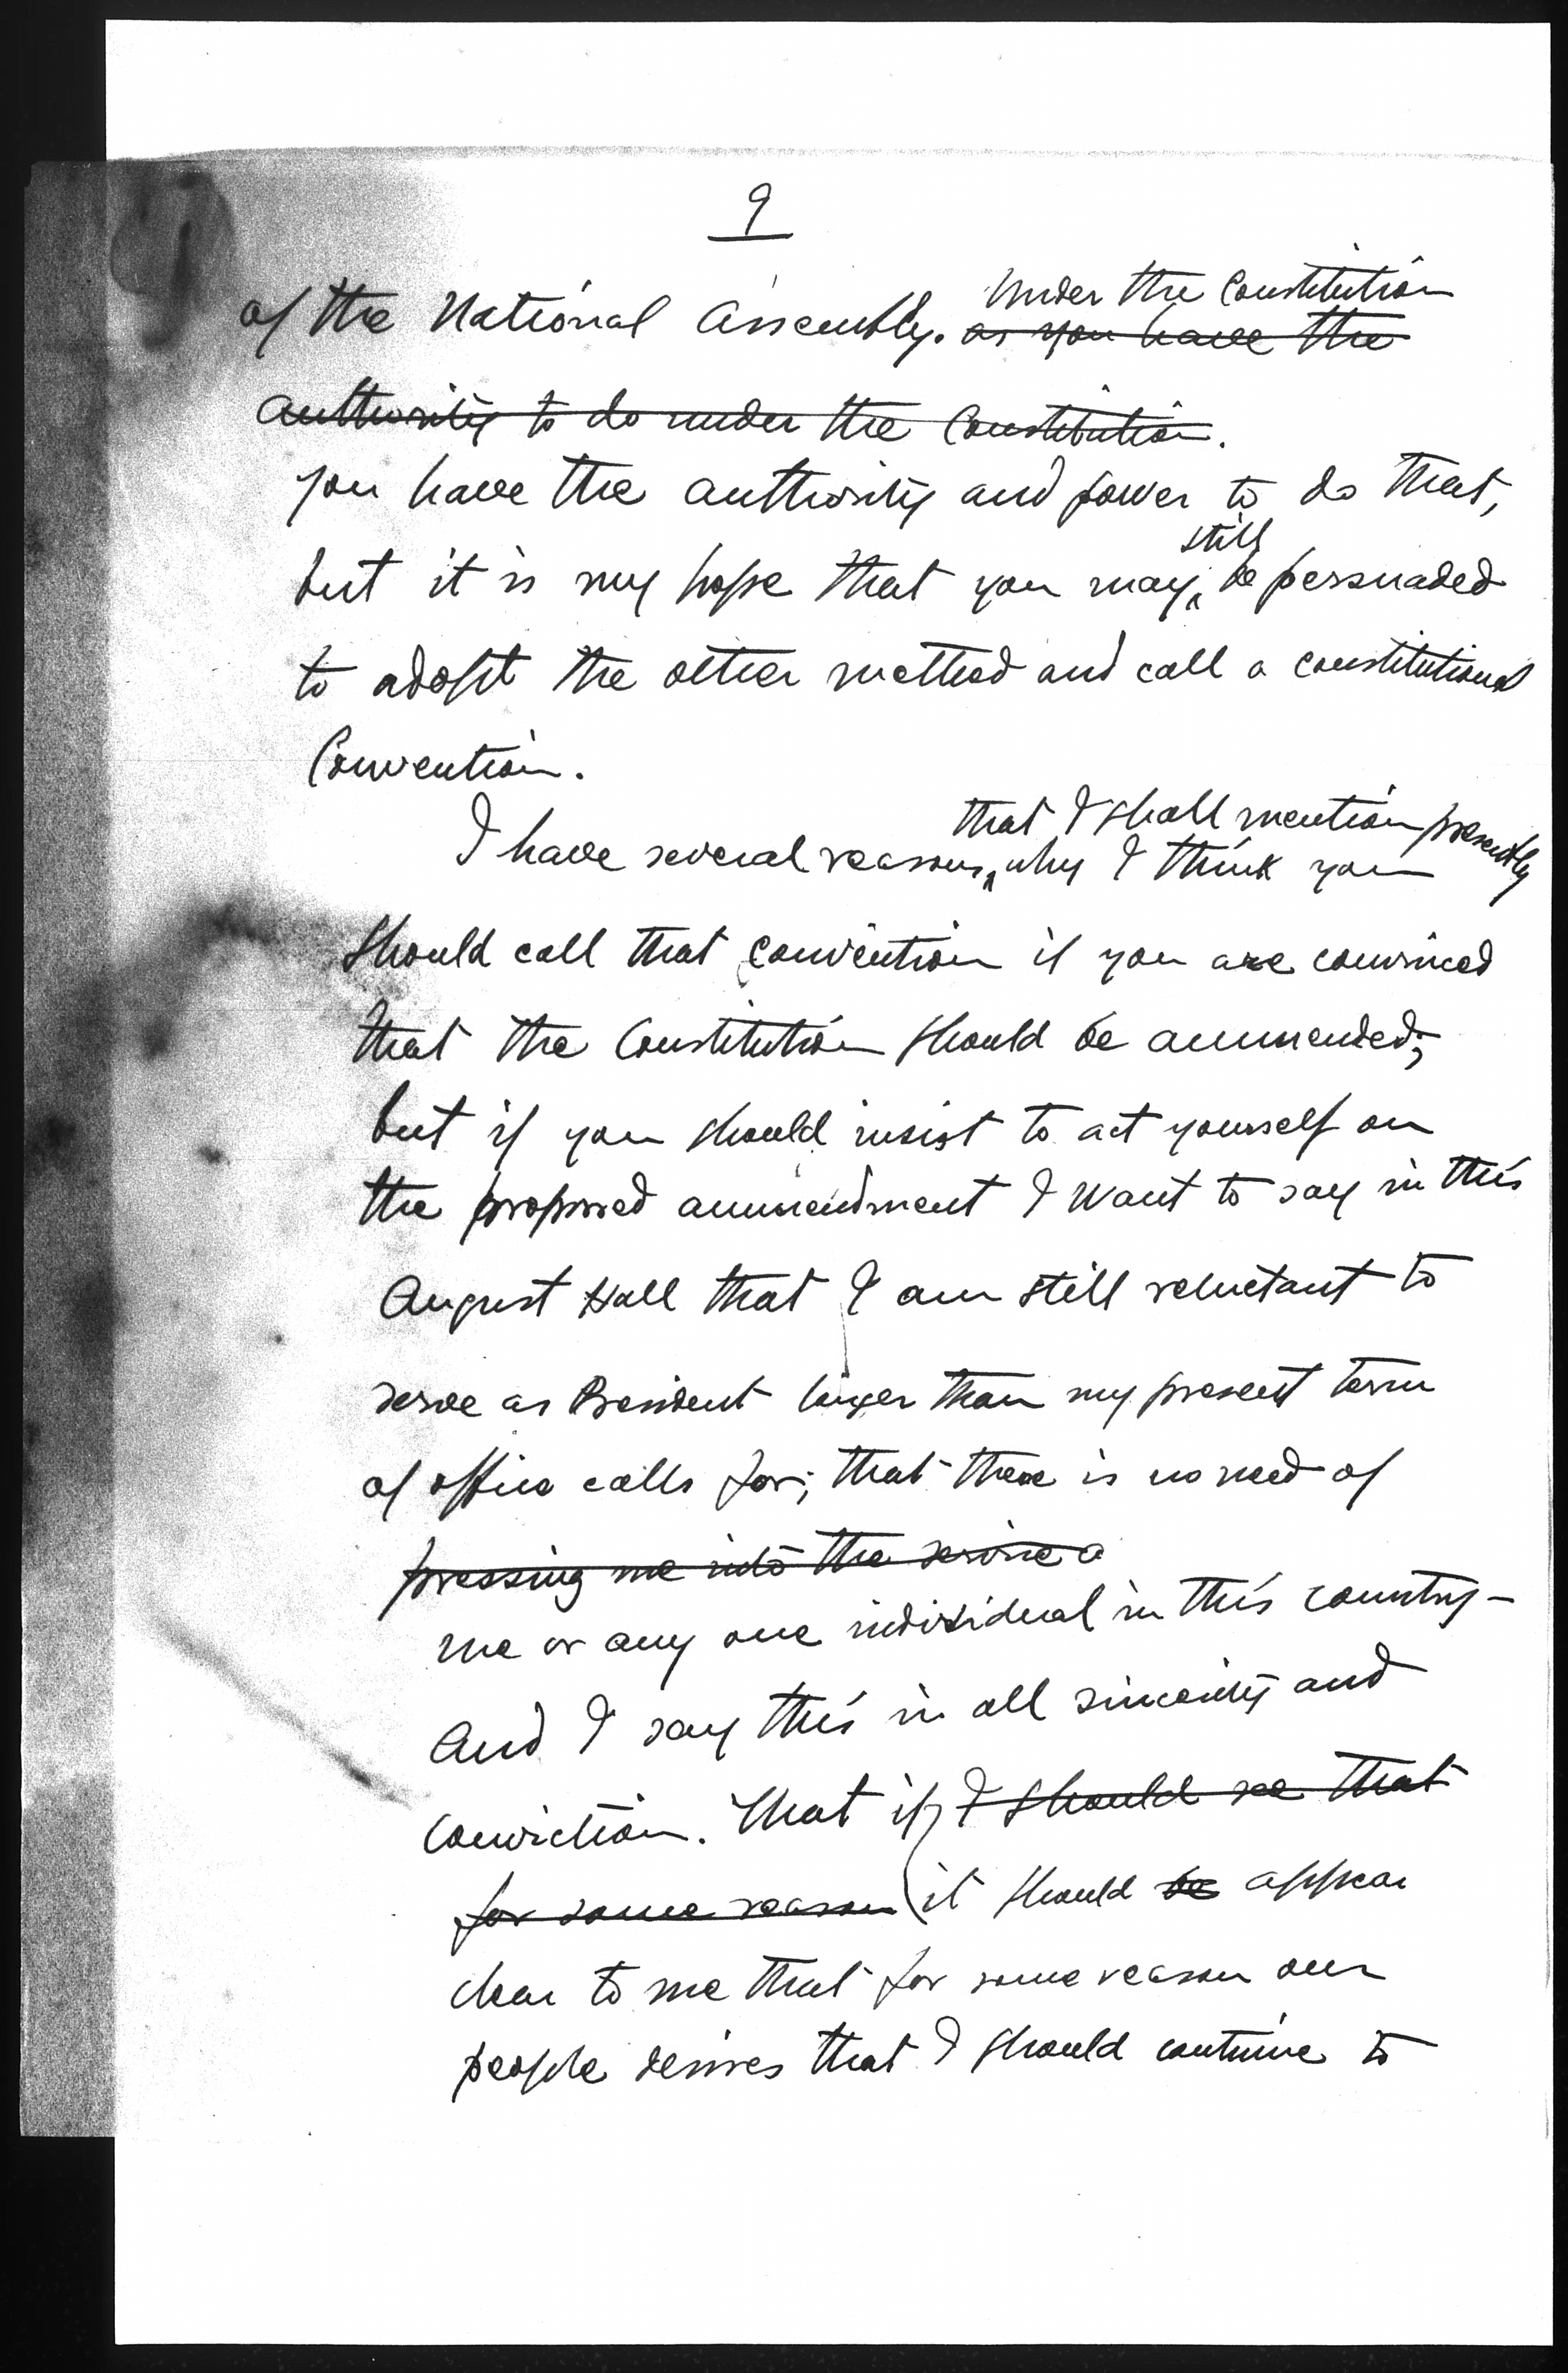 9
Under the Constitution
of the National Assembly. as you have the
authority to do under the Constitution.
you have the authority and power to do that,
still
but it is my hope that you may be persuaded
to adopt the other method and call a constitutional
Convention.
that I shall mention presently
I have several reasons, why I think you
should call that convention if you are convinced
that the Constitution should be ammended;
but if you should insist to act yourself on
the proposed ammendment I want to say in this
August Hall that I am still reluctant to
serve as President longer than my present term
of office calls for; that there is no need of
pressing me into the service a
me or any one individual in this country-
And I say this in all sincerity and
conviction. That if I should see that
for some reason it should be appear
clear to me that for some reason our
people desires that I should continue to